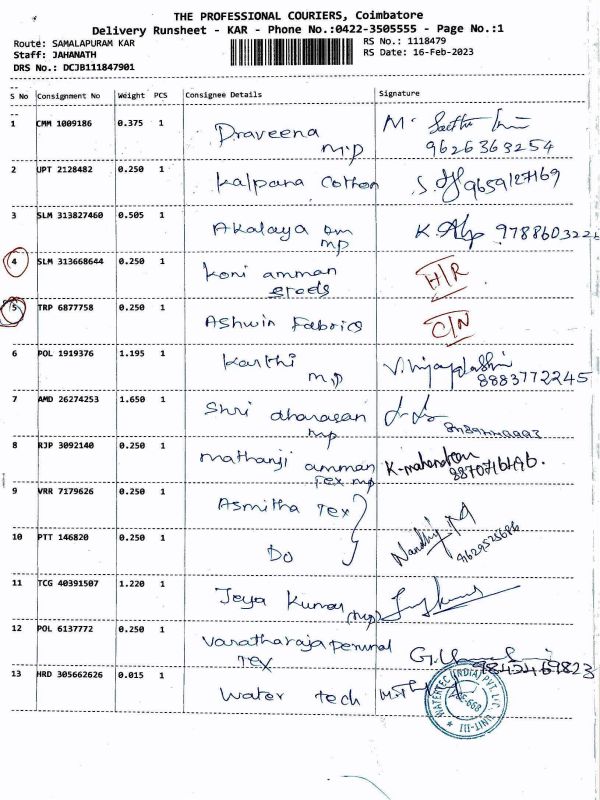 THE PROFESSIONAL COURIERS, Coimbatore
Delivery Runsheet - KAR - Phone No.:0422-3505555 - Page No.:1
Route: SAMALAPURAM KAR
RS No.: 1118479
Staff: JAHANATH
RS Date: 16-Feb-2023
DRS No.: DCJB111847901
S No Consignment No Weight PCS Consignee Details Signature
1 CMM 1009186 0.375 1 Praveena M.P M.
9626363254
2 UPT 2128482 0.250 1 Kalpana Cotton S. 9659127169
3 SLM 313827460 0.505 1 Akalaya am mp K.
4 SLM 313668644 0.250 1 Koni amman H/R
5 TRP 6877758 0.250 1 Ashwin Fabrics C/N
6 POL 1919376 1.195 1 Karthi M.P
8883772245
7 AMD 26274253 1.650 1 Shri mp
8 RJP 3092140 0.250 1 mathanji amman Tex mp K-mahendran
9 VRR 7179626 0.250 1 Asmitha Tex
10 PTT 146820 0.250 1 Do
9629525686
11 TCG 40391507 1.220 1 Jeya Kumar (mp)
12 POL 6137772 0.250 1 Varatharajaperumal Tex G.
13 HRD 305662626 0.015 1 Water tech
WATERTEC (INDIA) PVT. LTD. UNIT-III